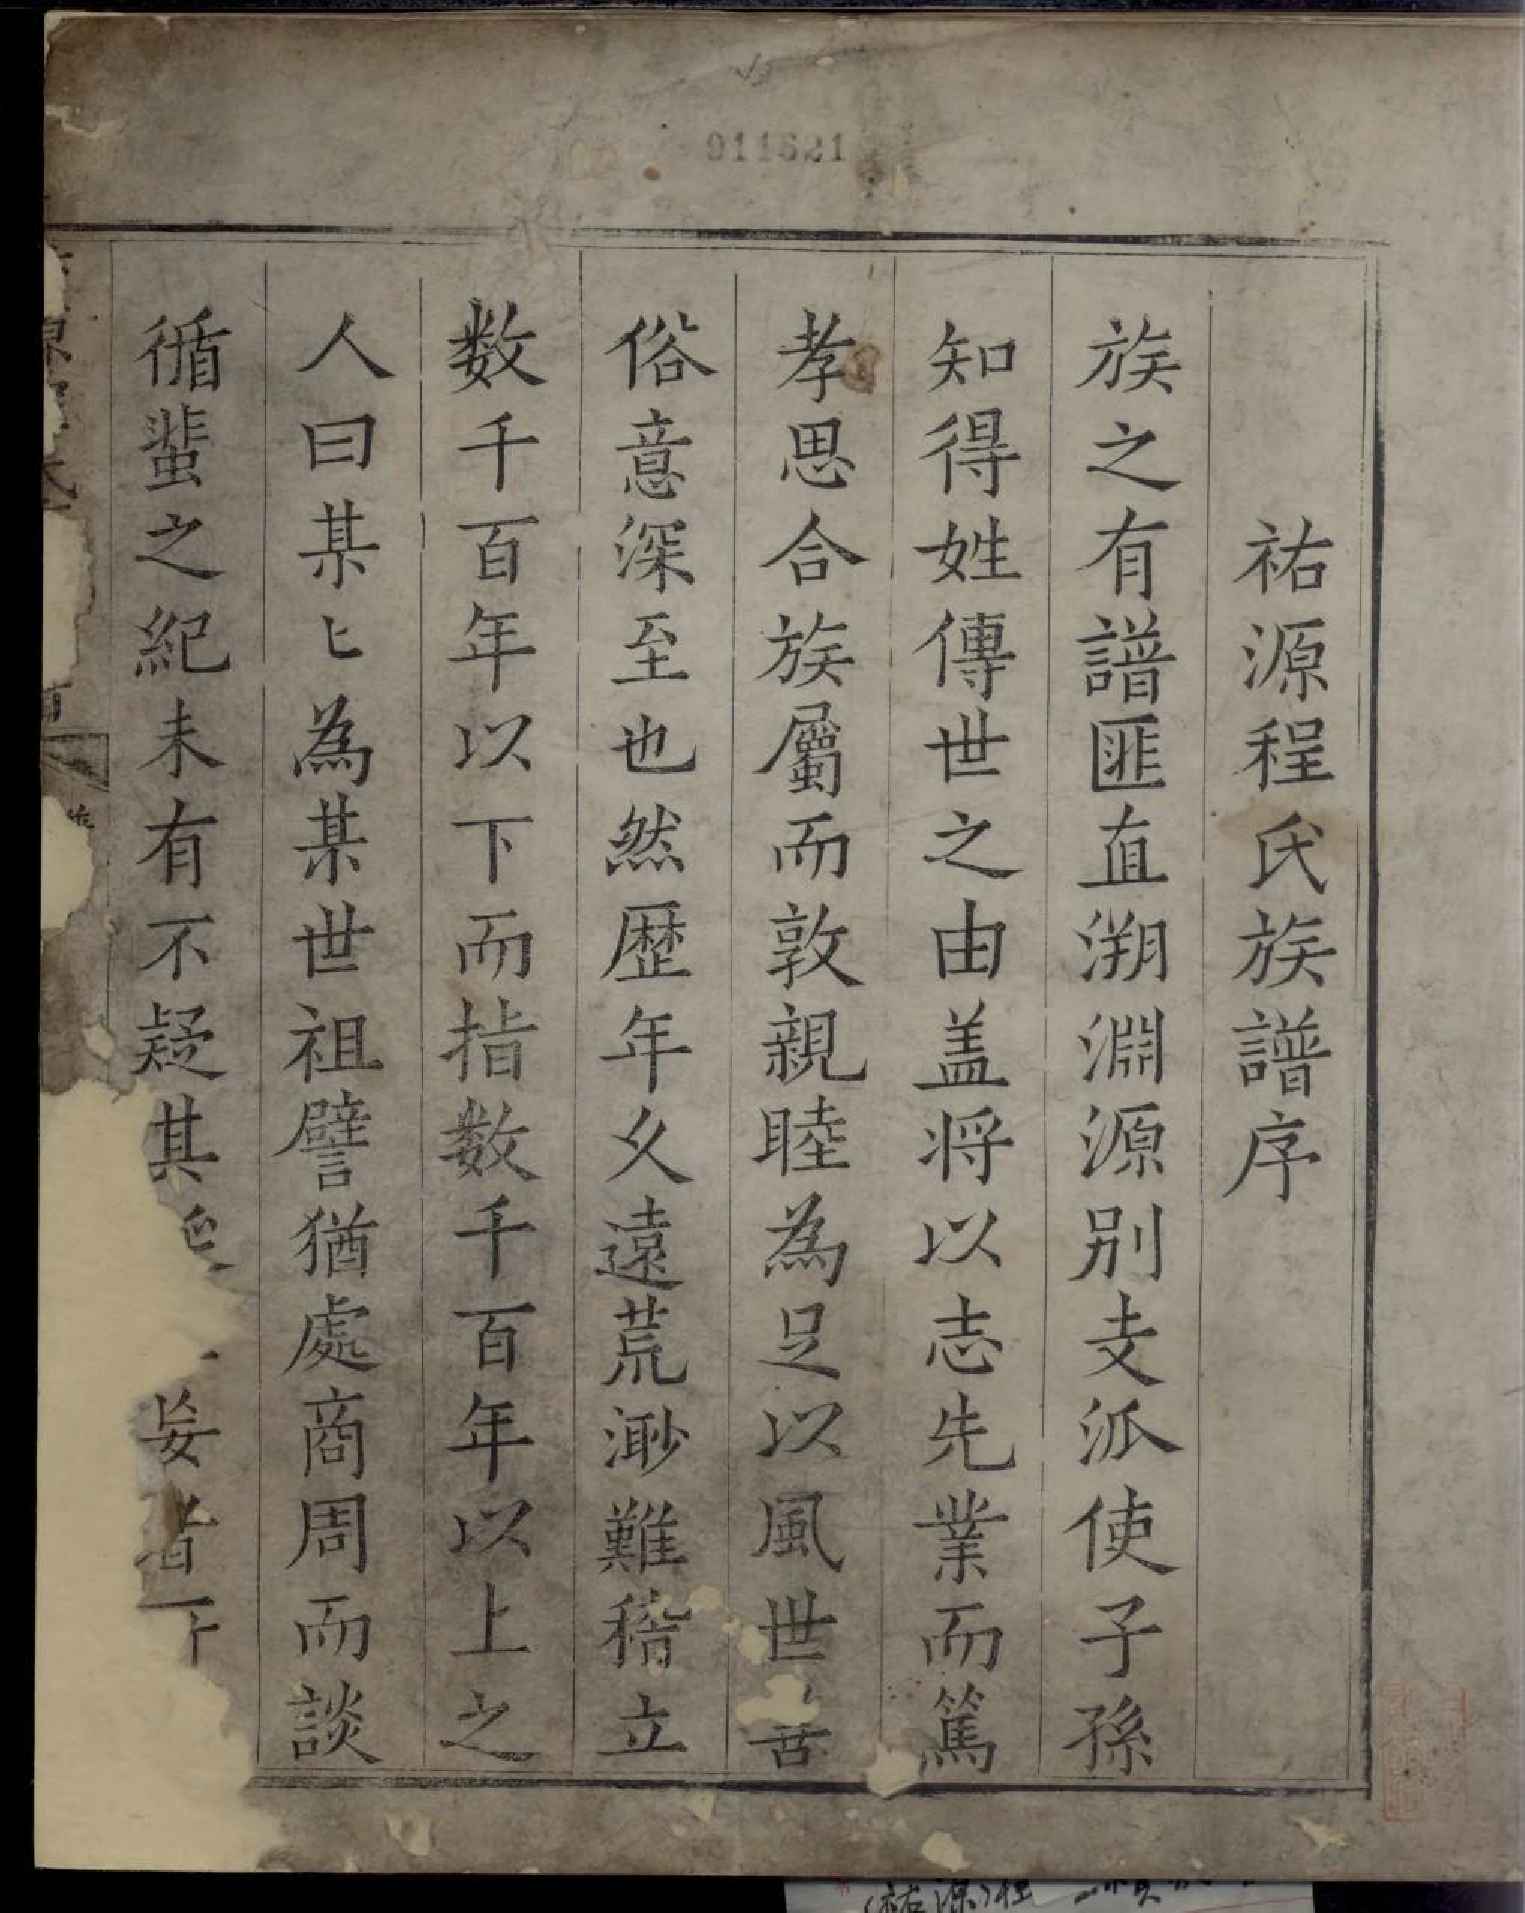 911621
祐源程氏族譜序
族之有譜匪直溯淵源别支派使子孫
知得姓傳世之由盖将以志先業而篤
孝思合族屬而敦親睦為足以風世善
俗意深至也然歴年久遠荒渺難稽立
数千百年以下而指数千百年以上之
人曰某〻為某世祖譬猶處商周而談
循蜚之紀未有不疑其妄者
(祐源)程